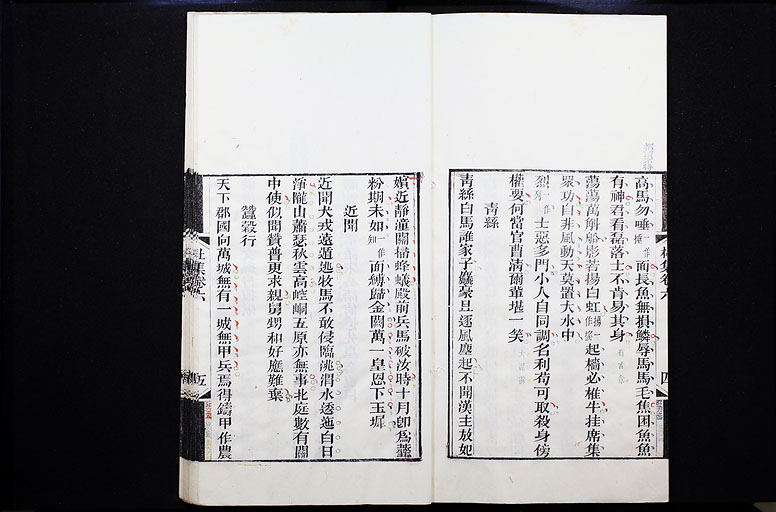 高馬勿唾一作捶面長魚無損鱗辱馬馬毛焦困魚魚
有神君看磊落士不肯易其身
蕩蕩萬斛船影若揚白虹起檣必椎牛挂席集
眾功自非風動天莫置大水中
烈士惡多門小人自同調名利苟可取殺身傍
權要何當官曹清爾輩堪一笑
青絲
青絲白馬誰家子麤豪且逐風塵起不聞漢主放妃
嬪近靜潼關掃蜂蟻殿前兵馬破汝時十月即為虀
粉期未如一作知面縛歸金闕萬一皇恩下玉墀
近聞
近聞犬戎遠遁逃牧馬不敢侵臨洮渭水逶迤白日
淨隴山蕭瑟秋雲高崆峒五原亦無事北庭數有關
中使似聞贊普更求親舅甥和好應難棄
蠶穀行
天下郡國向萬城無有一城無甲兵焉得鑄甲作農
杜集卷六
五
四